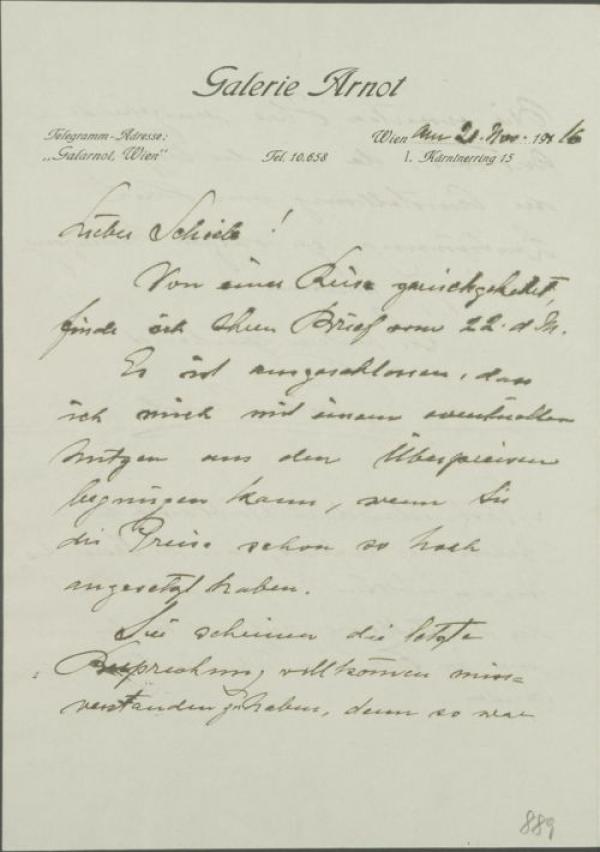 Galerie Arnot
Telegramm-Adresse:
„Galarnot, Wien"
Tel. 10.658
Wien am 21. Nov. 1916
I. Kärntnerring 15
Lieber Schiele!
Von einer Reise zurückgekehrt,
finde ich Ihren Brief vom 22. d M.
Es ist ausgeschlossen, dass
ich mich mit einem eventuellen
Nutzen aus den Überpreisen
begnügen kann, wenn Sie
die Preise schon so hoch
angesetzt haben.
Sie scheinen die letzte
Besprechung vollkommen miss=
verstanden zu haben, denn so war
889